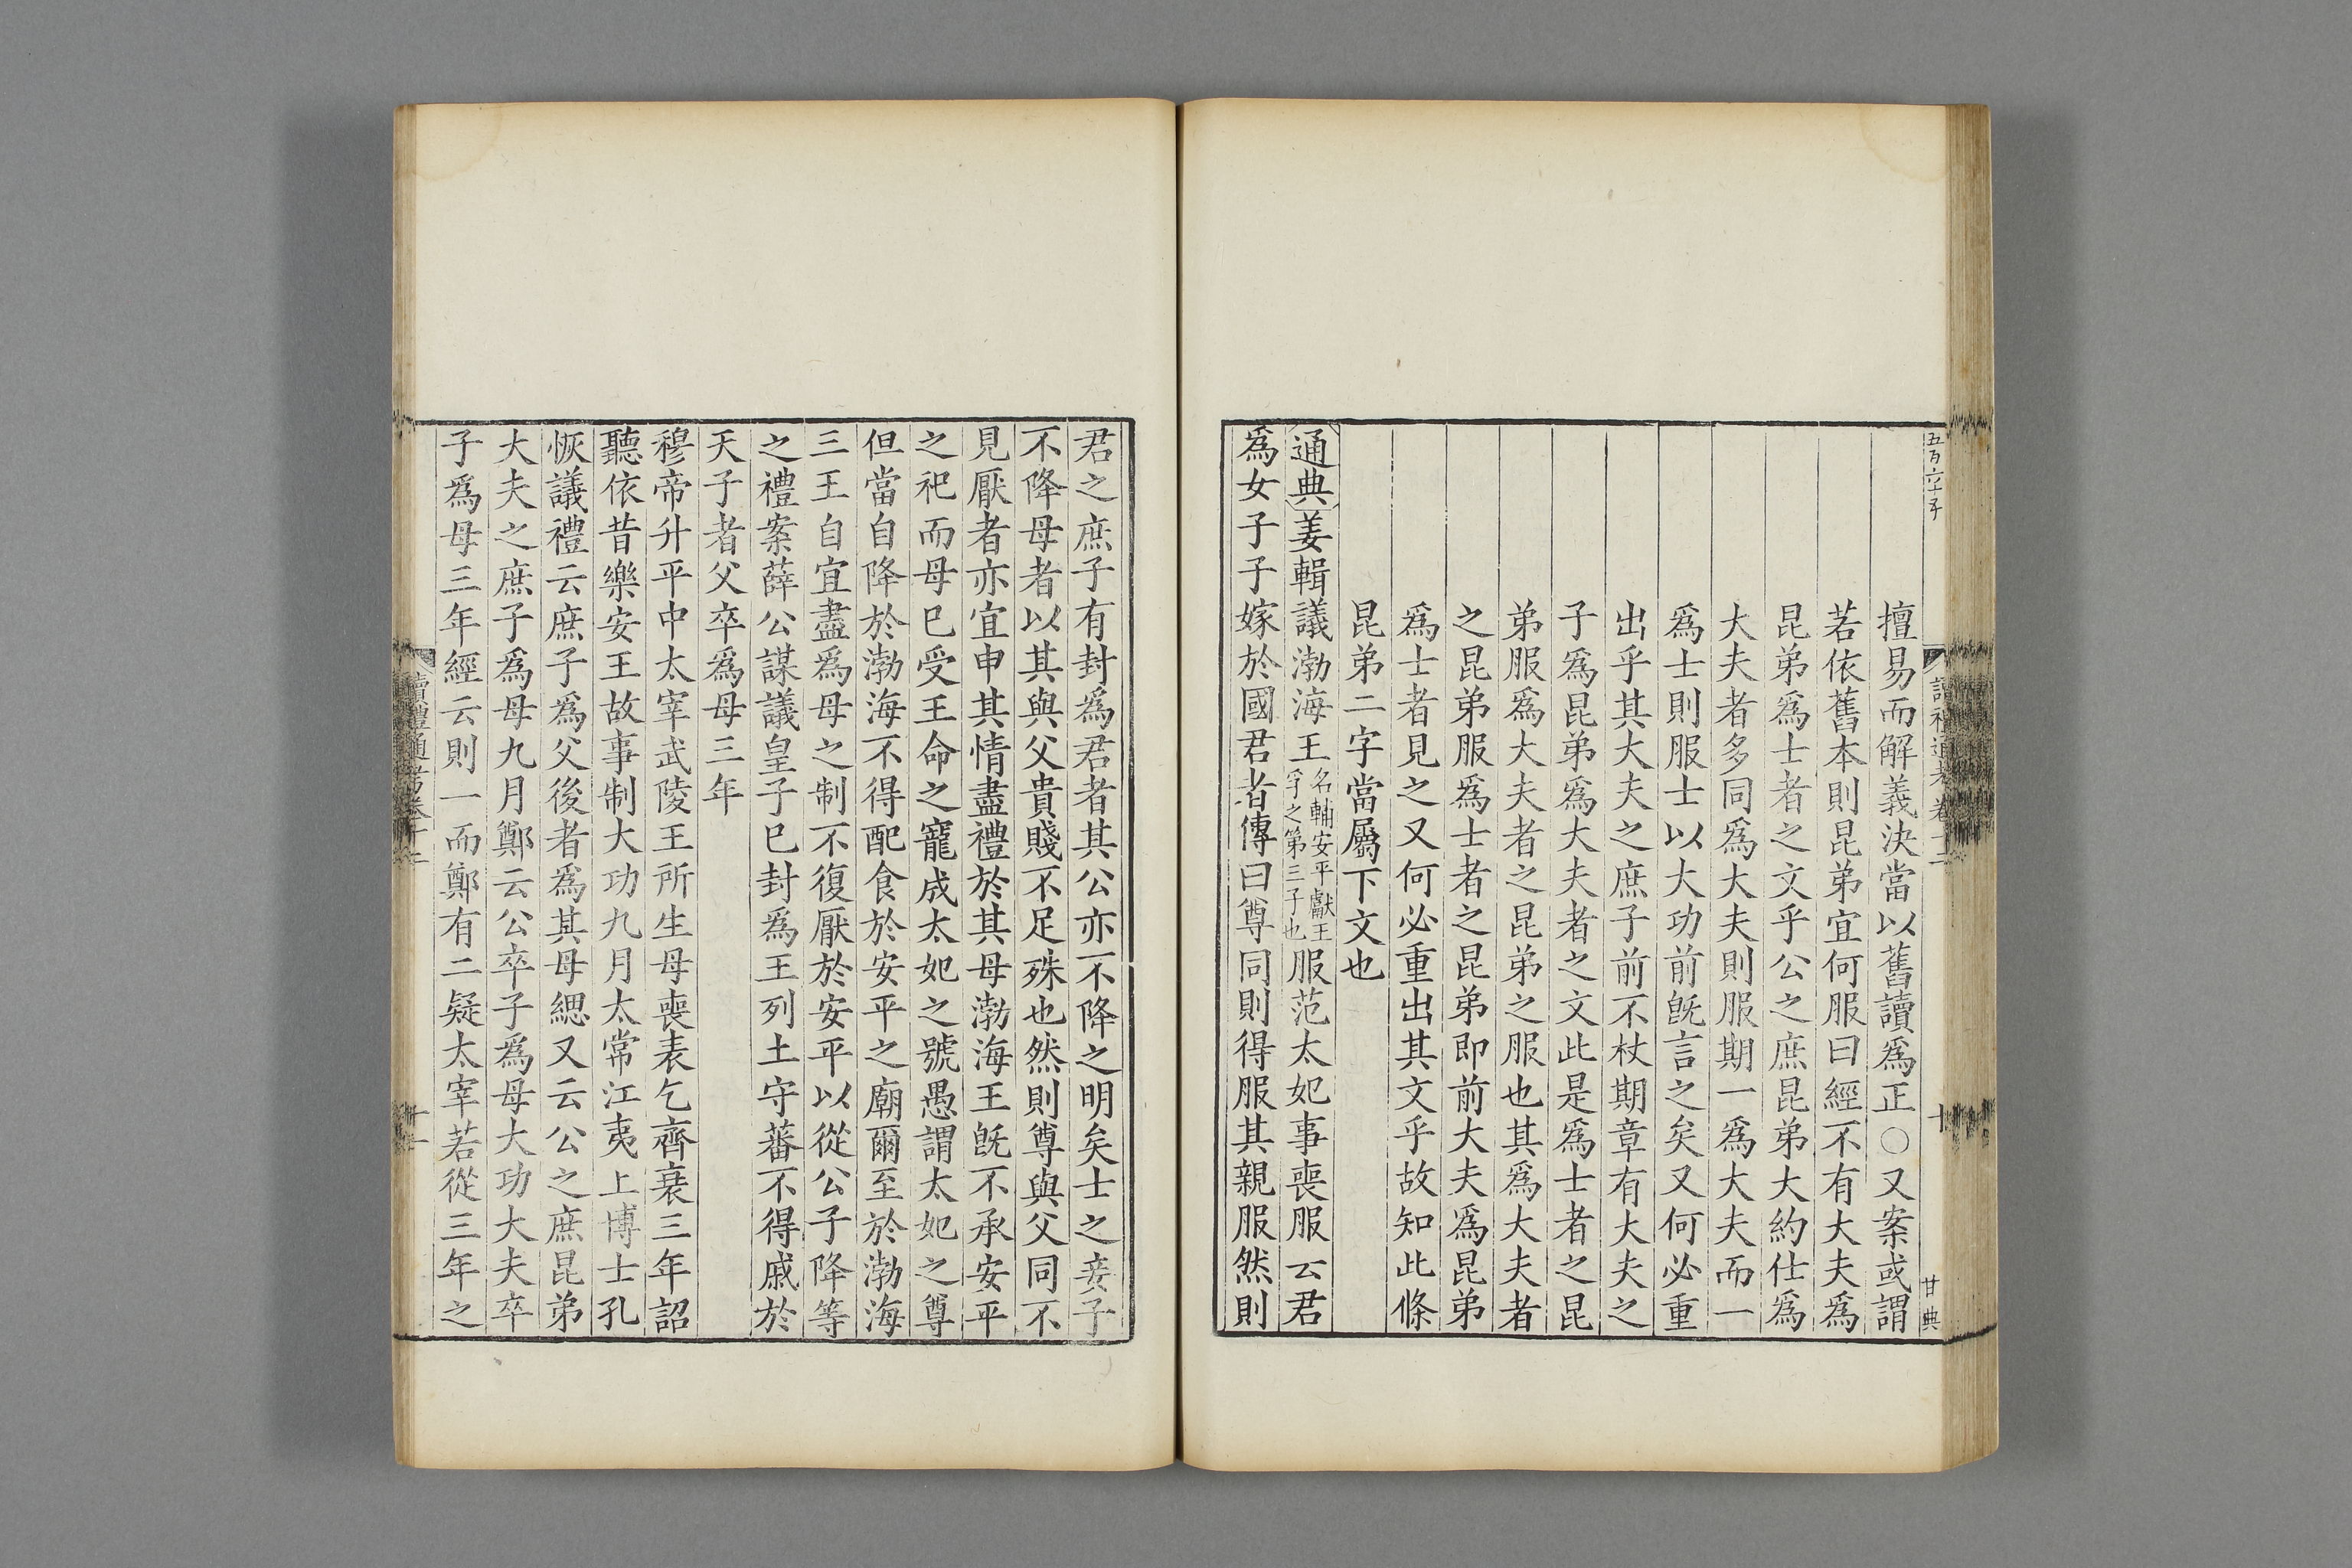 擅易而解義決當以舊讀爲正○又案或謂
若依舊本則昆弟宜何服曰經不有大夫爲
昆弟爲士者之文乎公之庶昆弟大約仕爲
大夫者多同爲大夫則服期一爲大夫而一
爲士則服士以大功前旣言之矣又何必重
出乎其大夫之庶子前不杖期章有大夫之
子爲昆弟爲大夫者之文此是爲士者之昆
弟服爲大夫者之昆弟之服也其爲大夫者
之昆弟服爲士者之昆弟即前大夫爲昆弟
爲士者見之又何必重出其文乎故知此條
昆弟二字當屬下文也
通典姜輯議渤海王名輔安平獻王孚之第三子也服范太妃事喪服云君
爲女子子嫁於國君者傳曰尊同則得服其親服然則
君之庶子有封爲君者其公亦不降之明矣士之妾子
不降母者以其與父貴賤不足殊也然則尊與父同不
見厭者亦宜申其情盡禮於其母渤海王旣不承安平
之祀而母巳受王命之寵成太妃之號愚謂太妃之尊
但當自降於渤海不得配食於安平之廟爾至於渤海
三王自宜盡爲母之制不復厭於安平以從公子降等
之禮案薛公謀議皇子巳封爲王列土守蕃不得戚於
天子者父卒爲母三年
穆帝升平中太宰武陵王所生母喪表乞齊衰三年詔
聽依昔樂安王故事制大功九月太常江夷上博士孔
恢議禮云庶子爲父後者爲其母緦又云公之庶昆弟
大夫之庶子爲母九月鄭云公卒子爲母大功大夫卒
子爲母三年經云則一而鄭有二疑太宰若從三年之
讀禮通考卷十二
十
甘典
讀禮通考卷十二
十一